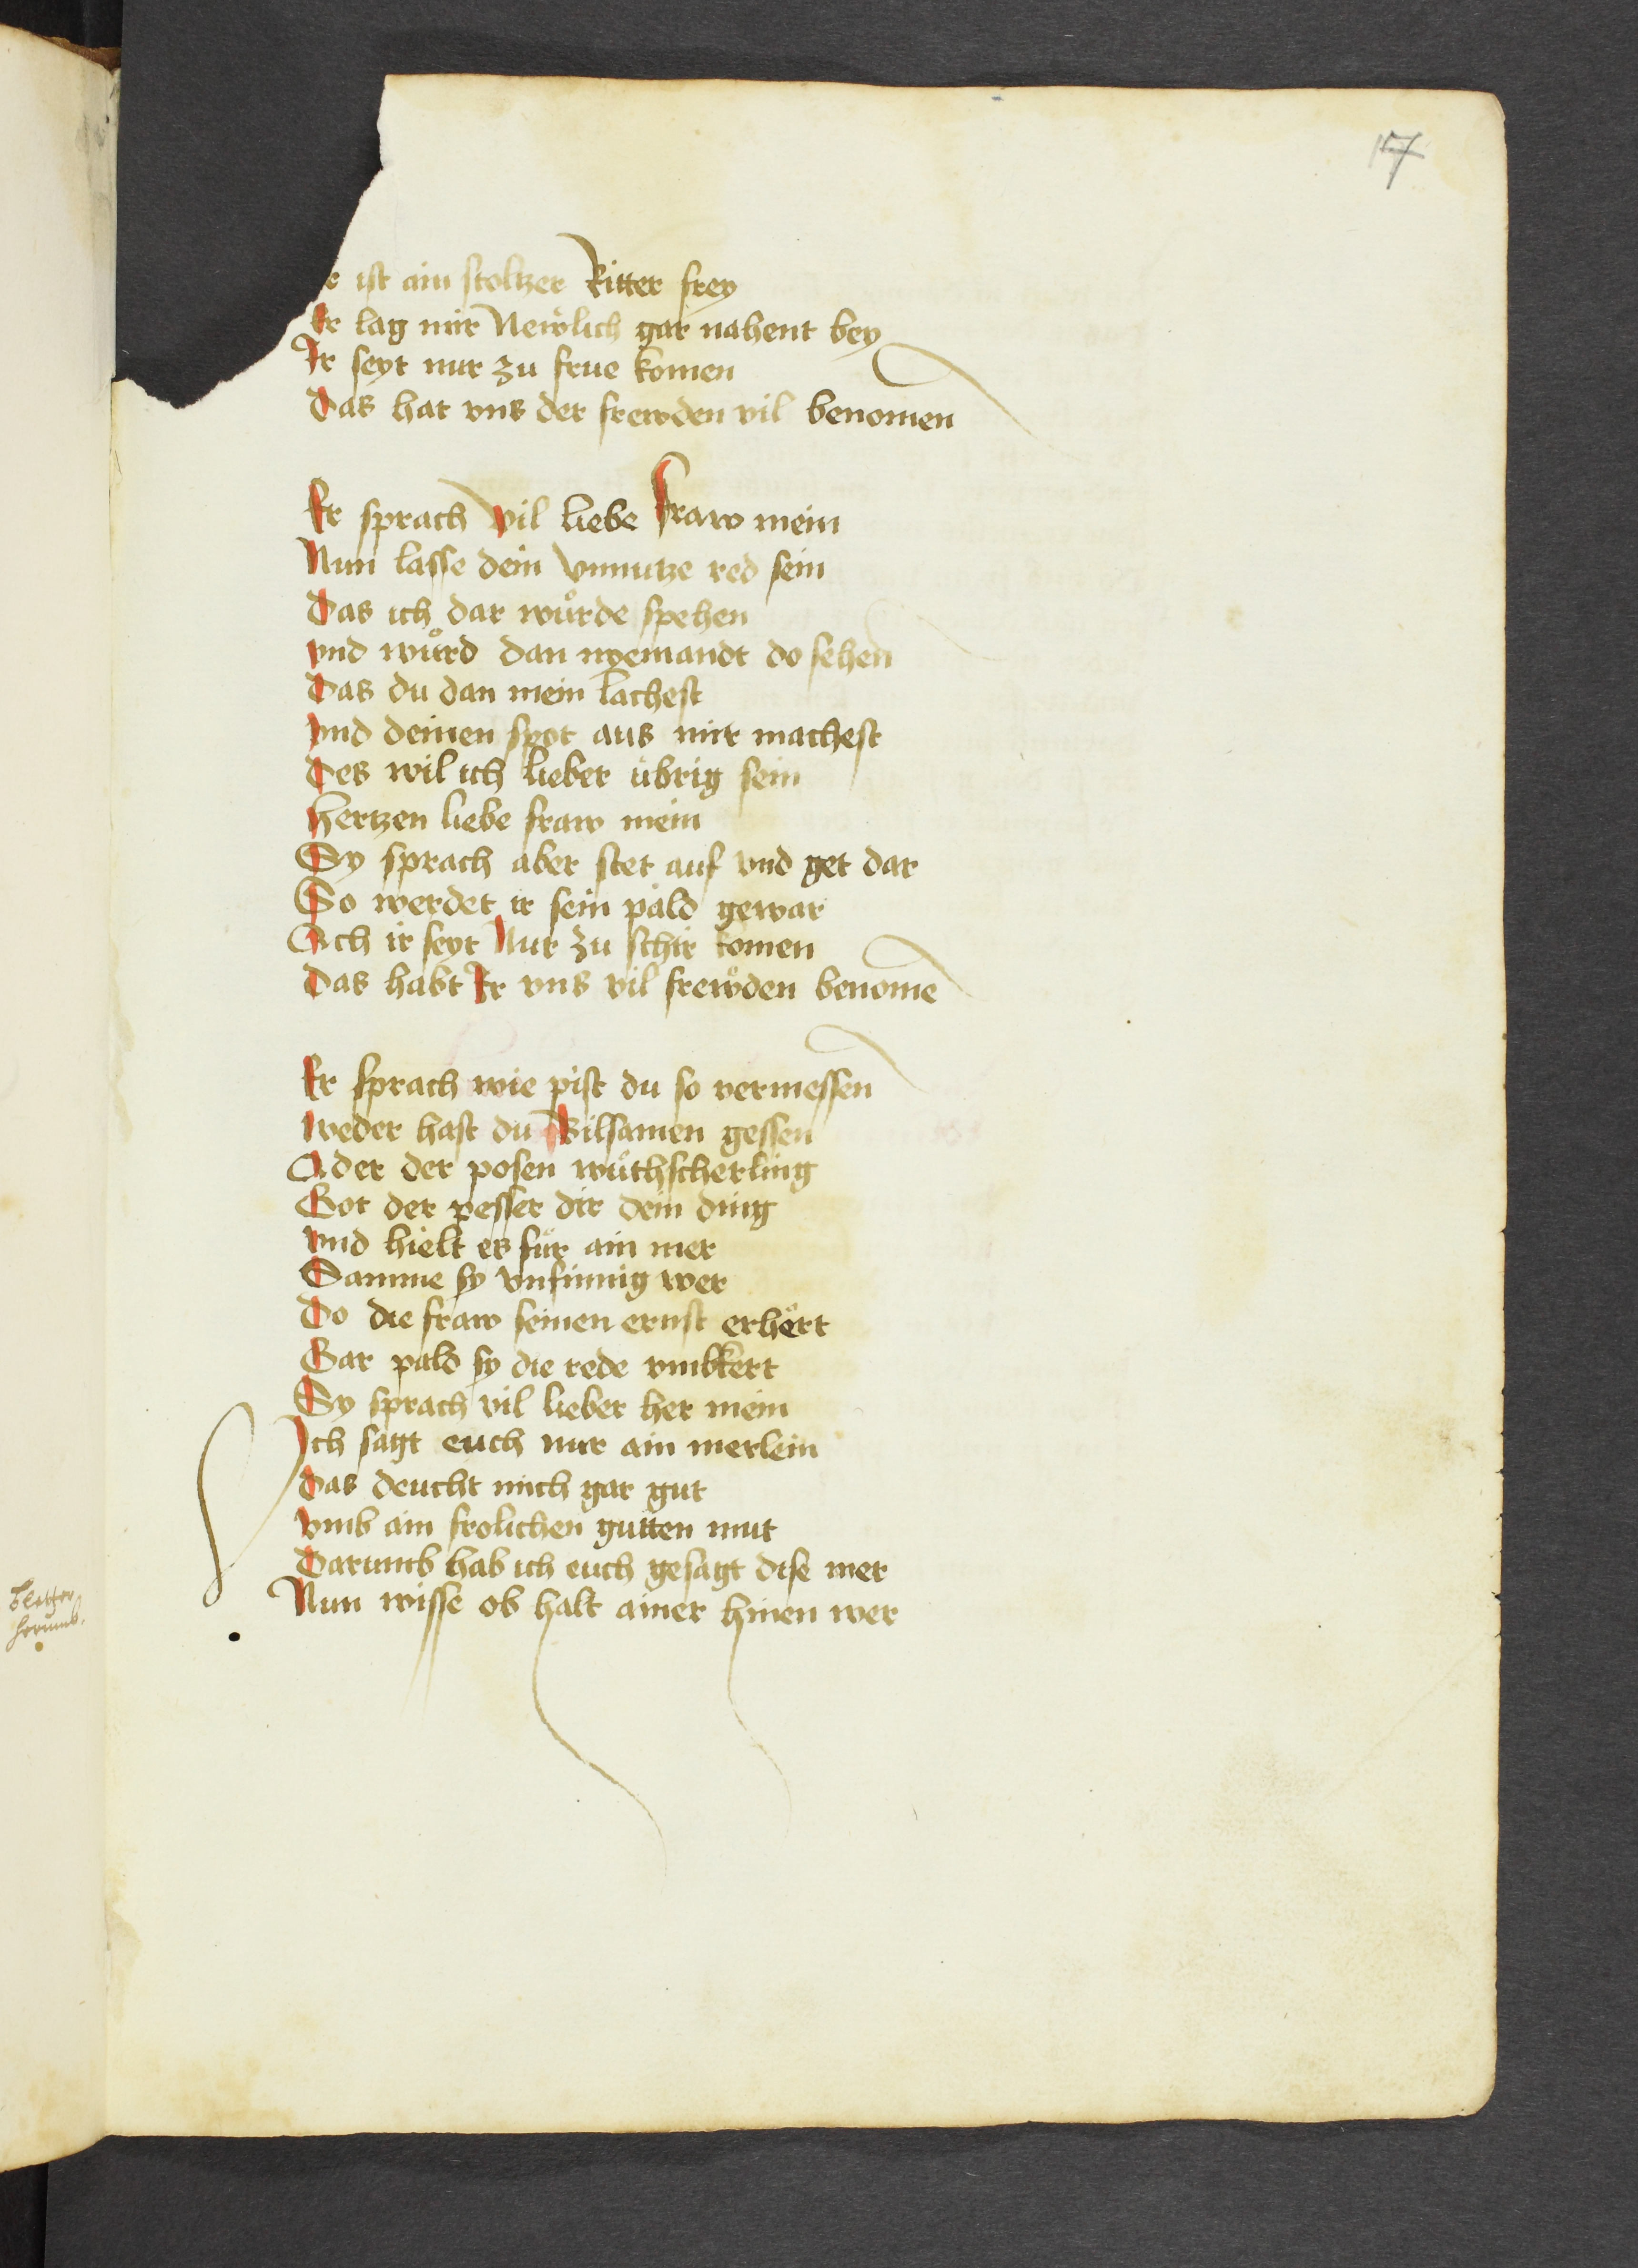 17
r ist ain stoltzer Ritter frey
Er lag mir Newlich gar nahent bey
Ir seyt nur zu frue komen
Das hat vns der frewden vil benomen
Er sprach vil liebe fraw mein
Nun lasse dein vnnutze red sein
Das ich dar wůrde spehen
vnd wůrd dan nyemandt do sehen
Das du dan mein lachest
vnd deinen spot aus mir machest
Des wil ich lieber übrig sein
hertzen liebe fraw mein
Sy sprach aber stet auf vnd get dar
So werdet ir sein pald gewar
Ach ir seyt Nur zu schir komen
Das habt Ir vns vil frewden benome
Er sprach wie pist du so vermessen
weder hast du Bilsamen gessen
Ader der posen wüthscherling
Got der pesser dir dein ding
vnd hielt es für ain mer
Samme sy vnsinnig wer
Do die fraw seinen ernst erhört
Gar pald sy die rede vmbkert
Sy sprach vil lieber her mein
Ich sagt euch nur ain merlein
das deucht mich gar gut
vmb ain frolichen gutten mut
Darumb hab ich euch gesagt dise mer
Nun wisse ob halt ainer hinen wer